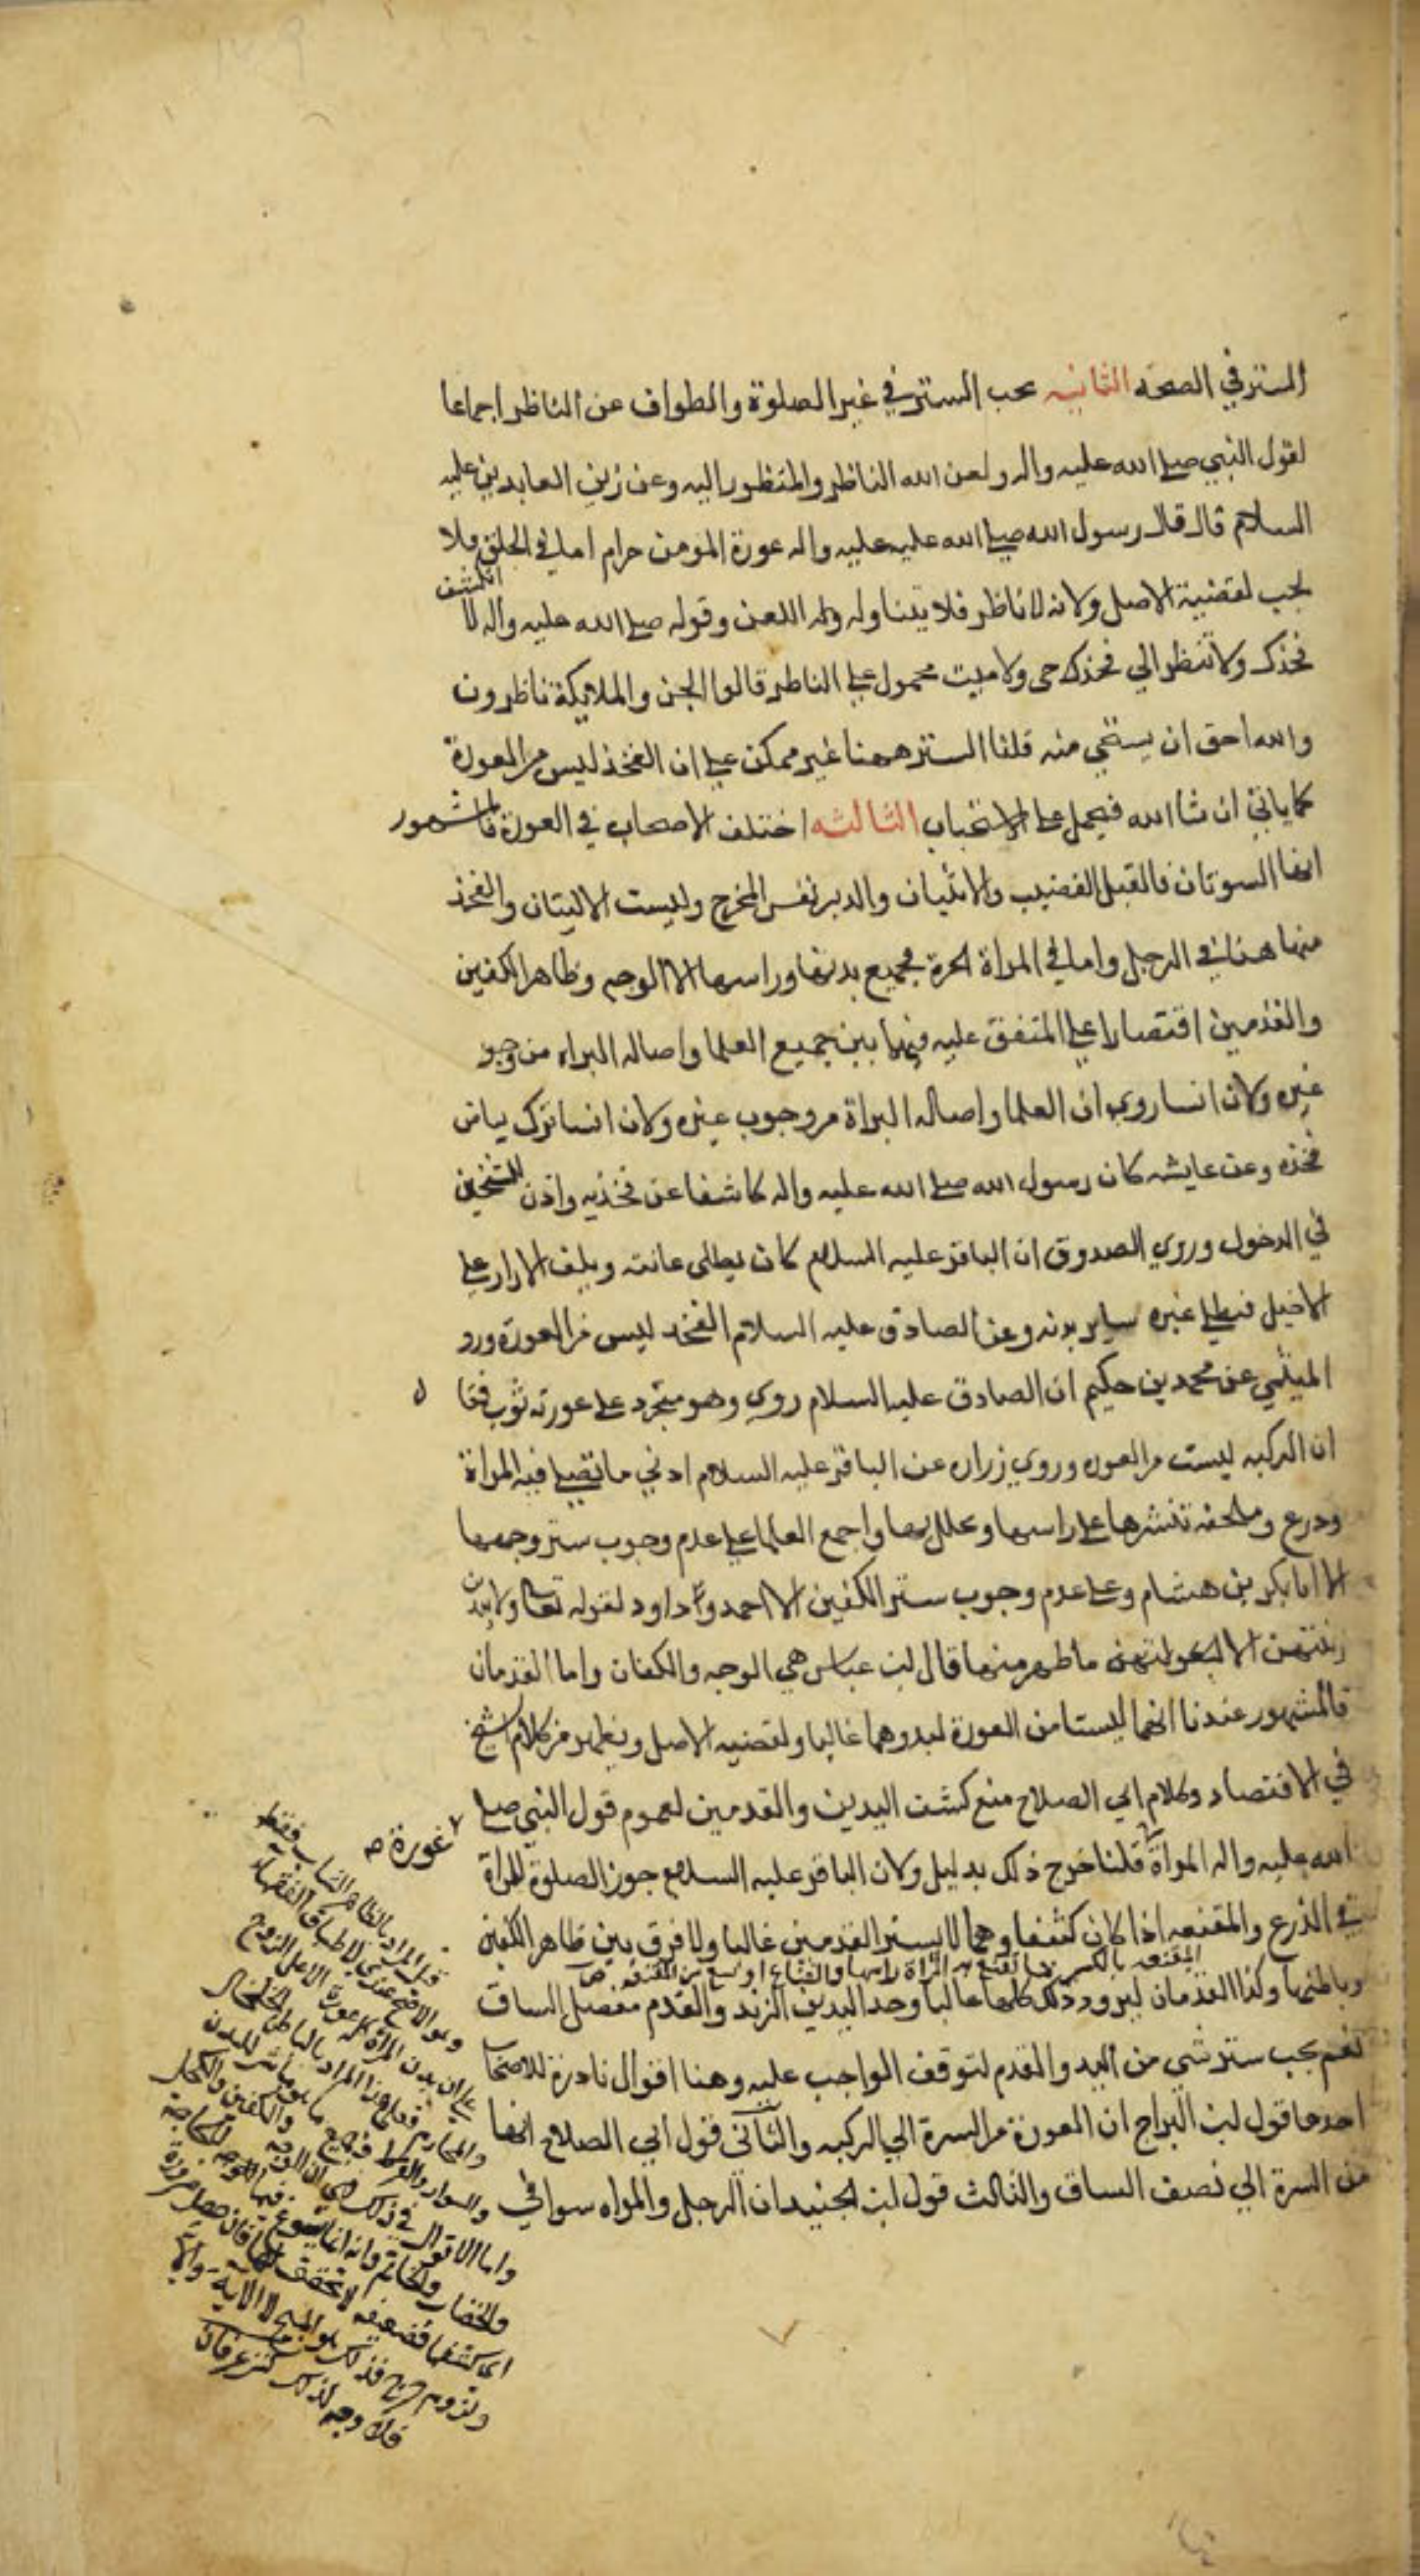 الستر في الصحه الثانيه يجب الستر في غير الصلوة والطواف عن الناظر اجماعا
لقول النبي صلى الله عليه واله ولعن الله الناظر والمنظور اليه وعن زين العابدين عليه
السلام قال قال رسول الله صلى الله عليه عليه واله عورة المومن حرام اما في الخلق فلا
يجب لقضية الاصل ولانه لا ناظر فلا يتناوله وله اللعن وقوله صلى الله عليه واله لا
انكشف
فخذك ولا تنظر الي فخذك حى ولا ميت محمول على الناظر قالوا الجن والملايكة ناظرون
والله احق ان يستحي منه قلنا الستر ههنا غير ممكن على ان الفخذ ليس من العورة
كما ياتي ان شا الله فيحمل على الاستحباب الثالثه اختلف الاصحاب في العورة فالمشهور
انها السوتان فالقبل القضيب والانثيان والدبر نفس المخرج وليست الاليتان والفخذ
منها هذا في الرجل واما في المراة الحرة فجميع بدنها وراسها الا الوجه وظاهر الكفين
والقدمين اقتصارا على المتفق عليه فيما بين جميع العلما واصاله البراه من وجو
غيره ولان انسا روى ان العلما واصاله البراة من وجوب غيره ولان انسا ترك بياض
فخذه وعن عايشه كان رسول الله صلى الله عليه واله كاشفا عن فخذيه واذن للشيخين
في الدخول وروي الصدوق ان الباقر عليه السلام كان يطلى عانته ويلف الازار على
الاحليل فيطلي غيره ساير بدنه وعن الصادق عليه السلام الفخذ ليس من العورة ورو
الميثمي عن محمد بن حكيم ان الصادق عليه السلام روي وهو متجرد على عورته ثوب فقا ل
ان الركبه ليست من العوره وروي زراره عن الباقر عليه السلام ادني ما تصلي فيه المراة
ودرع وملحفه تنشرها على راسها وتحلل بها واجمع العلما على عدم وجوب ستر وجهها
الا ابا بكر بن هشام وعلى عدم وجوب ستر الكفين الا احمد وداود لقوله تعالى ولا يبدين
زينتهن الا لبعولتهن ما ظهر منها قال ابن عباس هي الوجه والكفان واما القدمان
فالمشهور عندنا انهما ليستا من العورة لبدوهما غالبا ولقضيه الاصل ويظهر من كلام الشيخ
في الاقتصاد وكلام ابي الصلاح منع كشف اليدين والقدمين لعموم قول النبي صلى
الله عليه واله المراة قلنا خرج ذلك بدليل ولان الباقر عليه السلام جوز الصلوة للمراة
عورة صح
في الدرع والمقنعه اذا كان كثيفا وهما لا يستر القدمين غالبا ولا فرق بين ظاهر الكفين
المقنعه بالكسر ما تقنع به المراة راسها والقناع اوسع من المقنعه
وباطنهما وكذا القدمان لبرور ذلك كلها غالبا وحد اليدين الزند والقدم مفصل الساق
نعم يجب ستر شى من اليد والقدم لتوقف الواجب عليه وهنا اقوال نادرة للاصحاب
احدها قول ابن البراج ان العورة من السرة الي الركبه والثاني قول ابي الصلاح انها
من السرة الي نصف الساق والثالث قول ابن الجنيد ان الرجل والمراه سوا في
قيل المراد بالظاهر الثياب فقط
وهو الاصح عندي لاطباق الفقهاء
على ان بدن المراة كله عورة الا على الزوج
والمحارم فعلى هذا المراد بالباطن الخلخال
والسوار والقرط وجميع ما هو مباشر للبدن
واما الاقوال في ذلك ان الوجه والكفين والكحل
والخضاب والخاتم وانه انما
اى كشفها فضعيفه لا تحقق لها فان حصل ضرورة
ولزوم حرج فذلك هو المبيح لا الاية
فلا وجه لذلك كنز عرفان